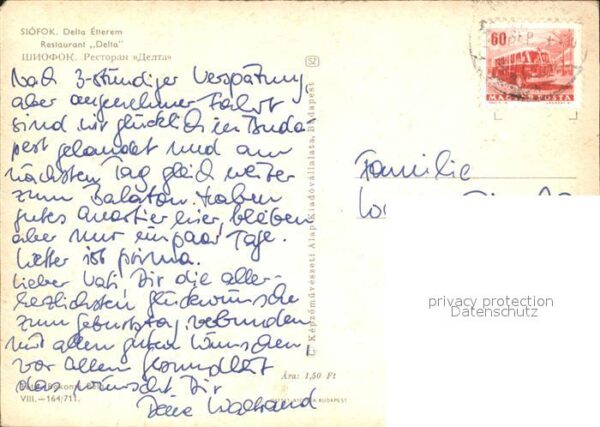 SIÓFOK. Delta Étterem
Restaurant „Delta"
ШИОФОК. Ресторан «Делта»
Nach 3-stündiger Verspätung
aber angenehmer Fahrt
sind wir glücklich in Buda
pest gelandet und am
nächsten Tag gleich weiter
zum Balaton. Haben
gutes Quartier hier, bleiben
aber nur ein paar Tage.
Wetter ist prima.
Lieber Vati, Dir die aller-
herzlichsten Glückwünsche
zum Geburtstag, verbunden
mit allen guten Wünschen,
vor allem Gesundheit
das wünscht Dir
Deine Waltraud
VIII.—164/711.
Ára: 1,50 Ft
C Képzőművészeti Alap Kiadóvállalata, Budapest
SZ
60
SEP
MAGYAR POSTA
Familie
privacy protection
Datenschutz